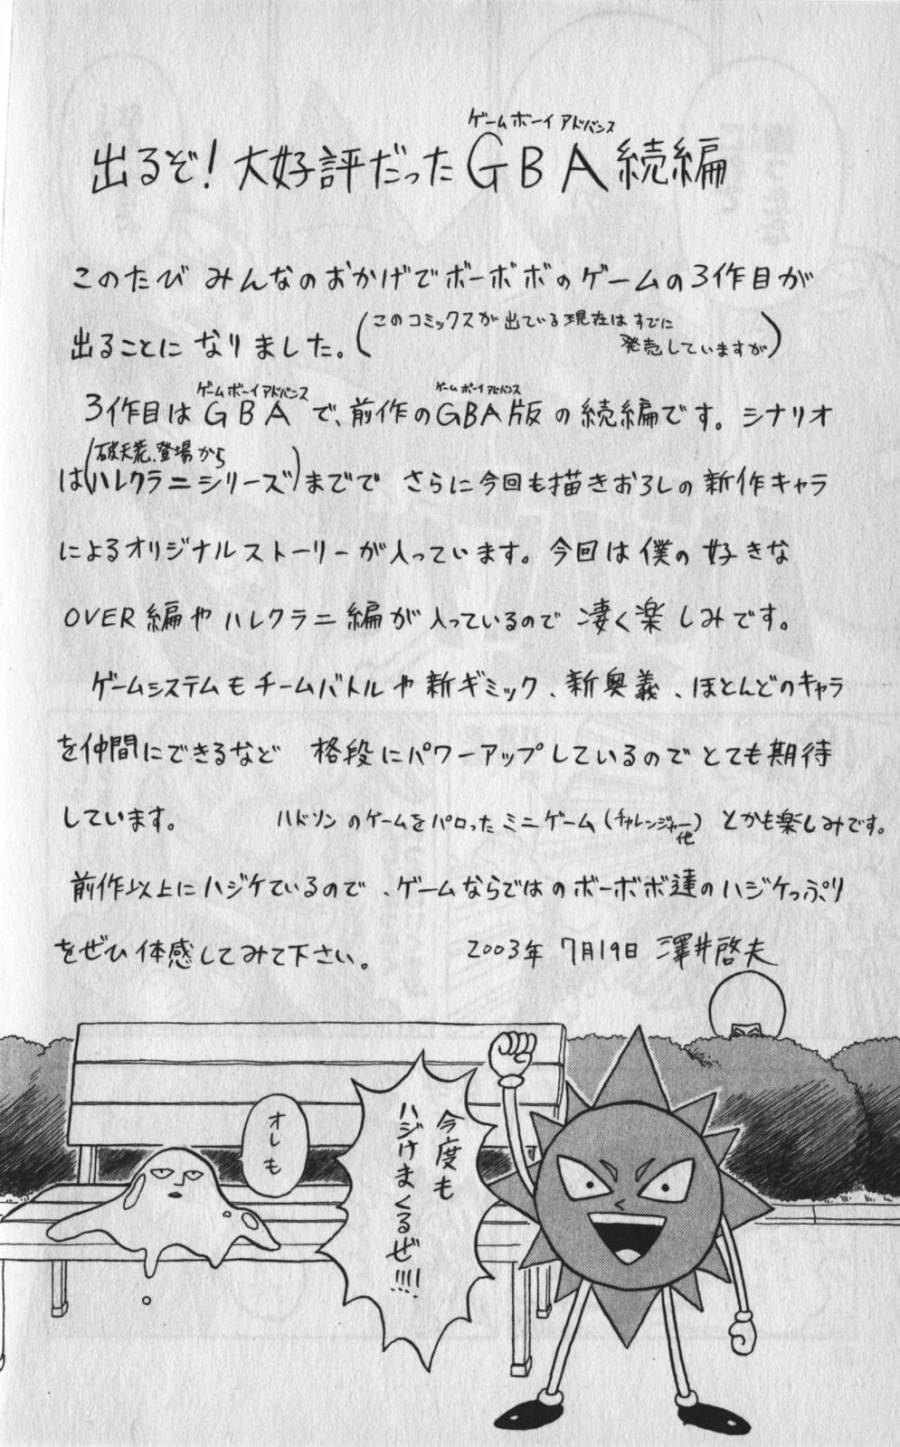 ゲームボーイアドバンス
出るぞ!大好評だったGBA続編
このたび みんなのおかげでボーボボのゲームの3作目が
出ることになりました。(このコミックスが出ている現在はすでに
発売していますが)
ゲームボーイアドバンス ゲームボーイアドバンス
3作目はGBAで、前作のGBA版の続編です。シナリオ
は(破天荒、登場から
ハレクラニシリーズ)までで さらに今回も描きおろしの新作キャラ
によるオリジナルストーリーが入っています。今回は僕の好きな
OVER編やハレクラニ編が入っているので 凄く楽しみです。
ゲームシステムもチームバトルや新ギミック、新奥義、ほとんどのキャラ
を仲間にできるなど 格段にパワーアップしているのでとても期待
しています。 ハドソンのゲームをパロったミニゲーム(チャレンジャー他)とかも楽しみです。
前作以上にハジケているので、ゲームならではのボーボボ達のハジケっぷり
をぜひ体感してみて下さい。 2003年 7月19日 澤井啓夫
今度も
ハジけまくるぜ!!!!
オレも